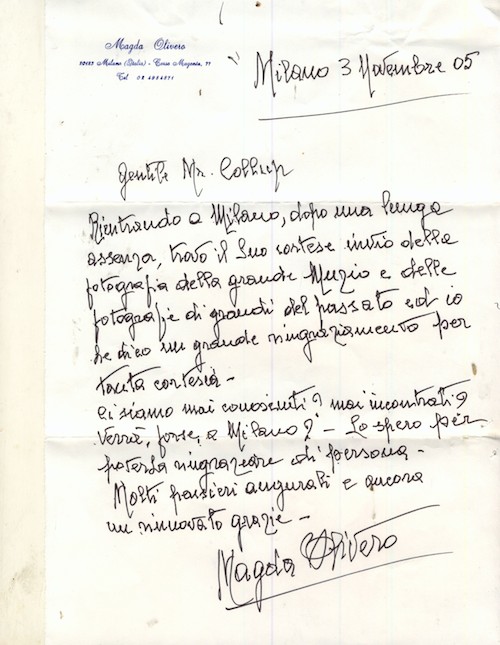 Magda Olivero
20123 Milano (Italia) - Corso Magenta, 77
Tel. 02 4994971
Milano 3 Novembre 05
Gentile Mr. Collup
Rientrando a Milano, dopo una lunga
assenza, trovo il Suo cortese invio della
fotografia della grande Muzio e delle
fotografie di grandi del passato ed io
Le dico un grande ringraziamento per
tanta cortesia -
Ci siamo mai conosciuti? mai incontrati?
Verrà, forse, a Milano? - Lo spero per
poterla ringraziare di persona -
Molti pensieri augurali e ancora
un rinnovato grazie -
Magda Olivero